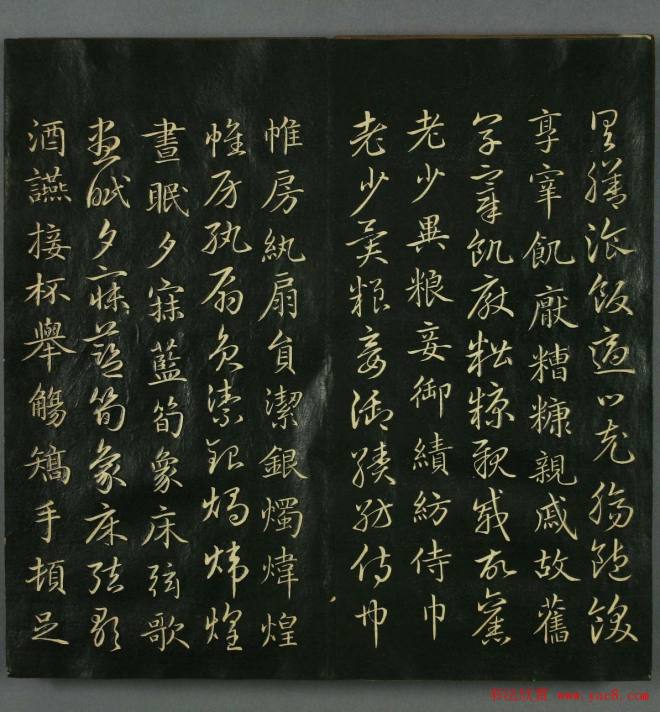 具膳湌飯適口充腸飽飫
享宰飢厭糟糠親戚故舊
享宰飢厭糟糠親戚故舊
老少異粮妾御績紡侍巾
老少異粮妾御績紡侍巾
帷房紈扇員潔銀燭煒煌
帷房紈扇員潔銀燭煒煌
晝眠夕寐藍筍象床弦歌
晝眠夕寐藍筍象床弦歌
酒讌接杯舉觴矯手頓足
书法欣赏 www.yac8.com